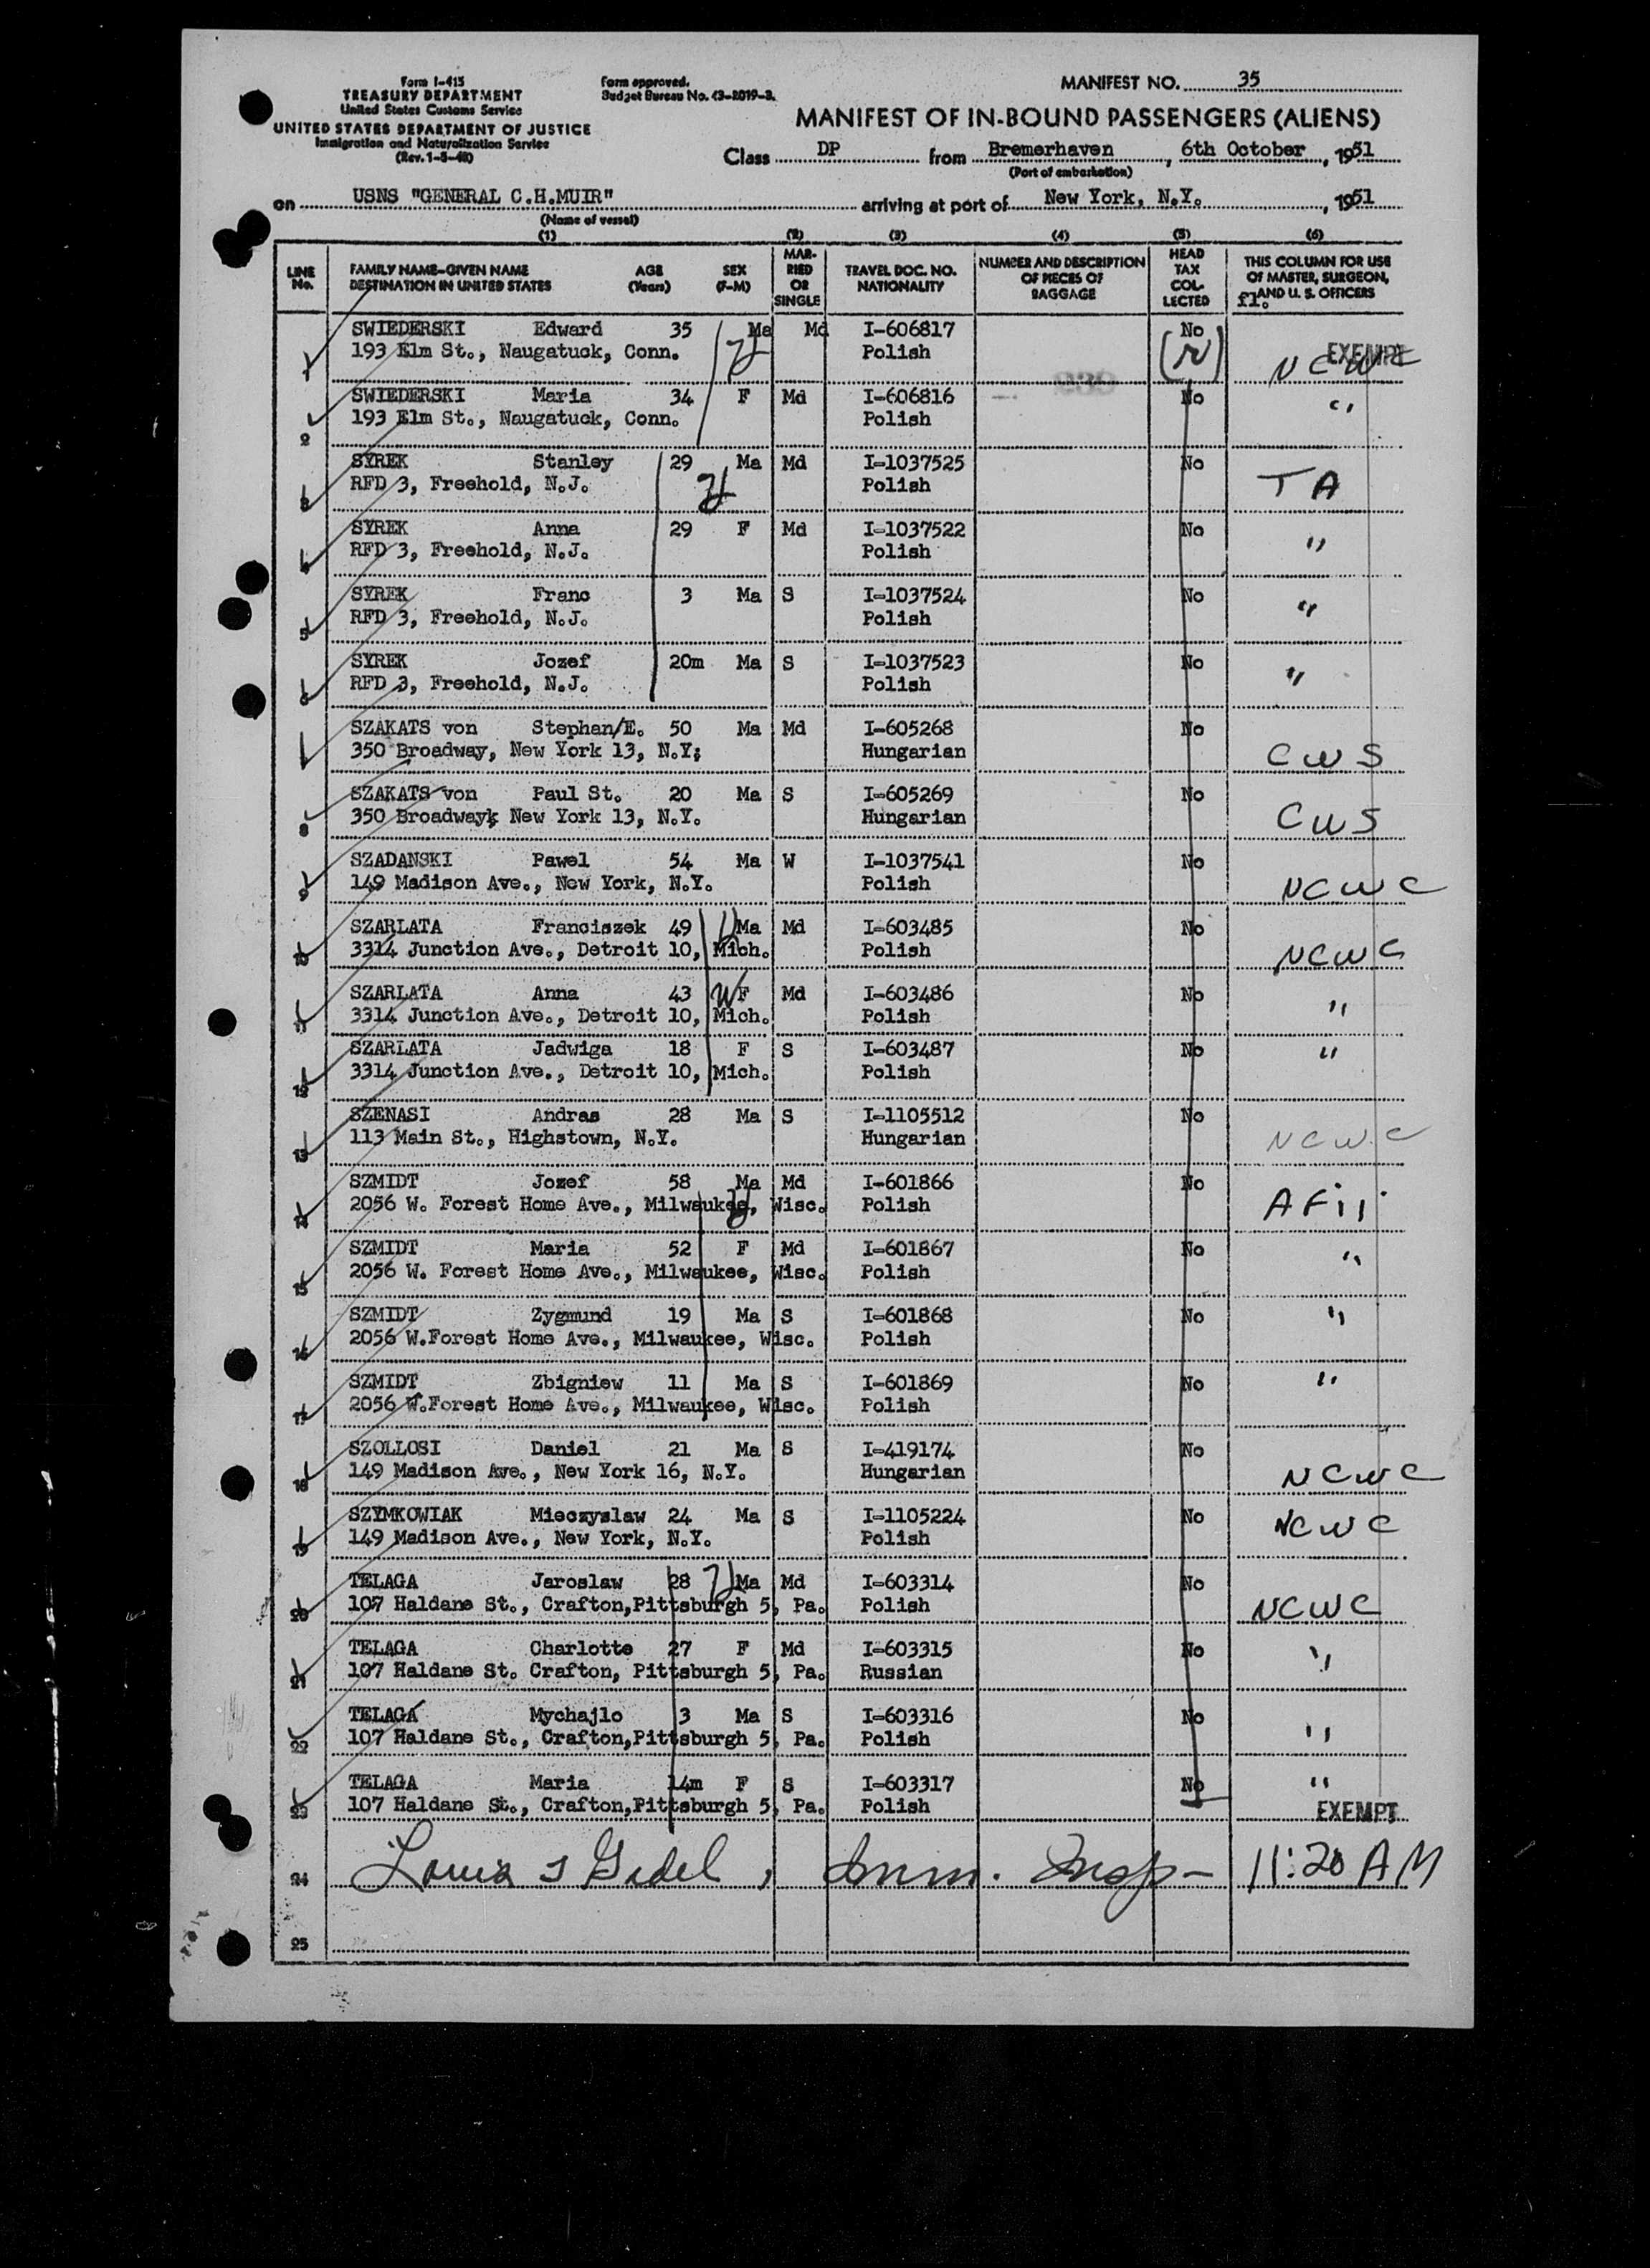 Form I-415
TREASURY DEPARTMENT
United States Customs Service
UNITED STATES DEPARTMENT OF JUSTICE
Immigration and Naturalization Service
(Rev. 1-5-48)
Form approved.
Budget Bureau No. 43-2019-3.
MANIFEST NO. 35
MANIFEST OF IN-BOUND PASSENGERS (ALIENS)
Class DP from Bremerhaven, 6th October, 1951
(Port of embarkation)
on USNS "GENERAL C.H.MUIR" arriving at port of New York, N.Y., 1951
(Name of vessel)
(1) (2) (3) (4) (5) (6)
LINE No. FAMILY NAME-GIVEN NAME DESTINATION IN UNITED STATES AGE (Years) SEX (F-M) MARRIED OR SINGLE TRAVEL DOC. NO. NATIONALITY NUMBER AND DESCRIPTION OF PIECES OF BAGGAGE HEAD TAX COLLECTED THIS COLUMN FOR USE OF MASTER, SURGEON, AND U. S. OFFICERS
fl.
SWIEDERSKI Edward 35 Ma Md I-606817 No
1 193 Elm St., Naugatuck, Conn. Polish NCWC EXEMPT
SWIEDERSKI Maria 34 F Md I-606816 No "
2 193 Elm St., Naugatuck, Conn. Polish
SYREK Stanley 29 Ma Md I-1037525 No
3 RFD 3, Freehold, N.J. Polish TA
SYREK Anna 29 F Md I-1037522 No
4 RFD 3, Freehold, N.J. Polish "
SYREK Franc 3 Ma S I-1037524 No
5 RFD 3, Freehold, N.J. Polish "
SYREK Jozef 20m Ma S I-1037523 No
6 RFD 3, Freehold, N.J. Polish "
SZAKATS von Stephan/E. 50 Ma Md I-605268 No
350 Broadway, New York 13, N.Y; Hungarian CWS
SZAKATS von Paul St. 20 Ma S I-605269 No
8 350 Broadwayk New York 13, N.Y. Hungarian CWS
SZADANSKI Pawel 54 Ma W I-1037541 No
9 149 Madison Ave., New York, N.Y. Polish NCWC
SZARLATA Franciszek 49 Ma Md I-603485 No
10 3314 Junction Ave., Detroit 10, Mich. Polish NCWC
SZARLATA Anna 43 F Md I-603486 No
11 3314 Junction Ave., Detroit 10, Mich. Polish "
SZARLATA Jadwiga 18 F S I-603487 No "
12 3314 Junction Ave., Detroit 10, Mich. Polish
SZENASI Andras 28 Ma S I-1105512 No
13 113 Main St., Highstown, N.Y. Hungarian NCWC
SZMIDT Jozef 58 Ma Md I-601866 No
14 2056 W. Forest Home Ave., Milwaukee, Wisc. Polish
SZMIDT Maria 52 F Md I-601867 No "
15 2056 W. Forest Home Ave., Milwaukee, Wisc. Polish
SZMIDT Zygmund 19 Ma S I-601868 No "
16 2056 W.Forest Home Ave., Milwaukee, Wisc. Polish
SZMIDT Zbigniew 11 Ma S I-601869 No "
17 2056 W.Forest Home Ave., Milwaukee, Wisc. Polish
SZOLLOSI Daniel 21 Ma S I-419174 No
18 149 Madison Ave., New York 16, N.Y. Hungarian NCWC
SZYMKOWIAK Mieczyslaw 24 Ma S I-1105224 No NCWC
19 149 Madison Ave., New York, N.Y. Polish
TELAGA Jaroslaw 28 Ma Md I-603314 No
20 107 Haldane St., Crafton,Pittsburgh 5, Pa. Polish NCWC
TELAGA Charlotte 27 F Md I-603315 No "
21 107 Haldane St. Crafton, Pittsburgh 5, Pa. Russian
TELAGA Mychajlo 3 Ma S I-603316 No "
22 107 Haldane St., Crafton,Pittsburgh 5, Pa. Polish
TELAGA Maria 14m F S I-603317 No "
23 107 Haldane St., Crafton,Pittsburgh 5, Pa. Polish EXEMPT
24 Louis Imm. Insp- 11:20 AM
25